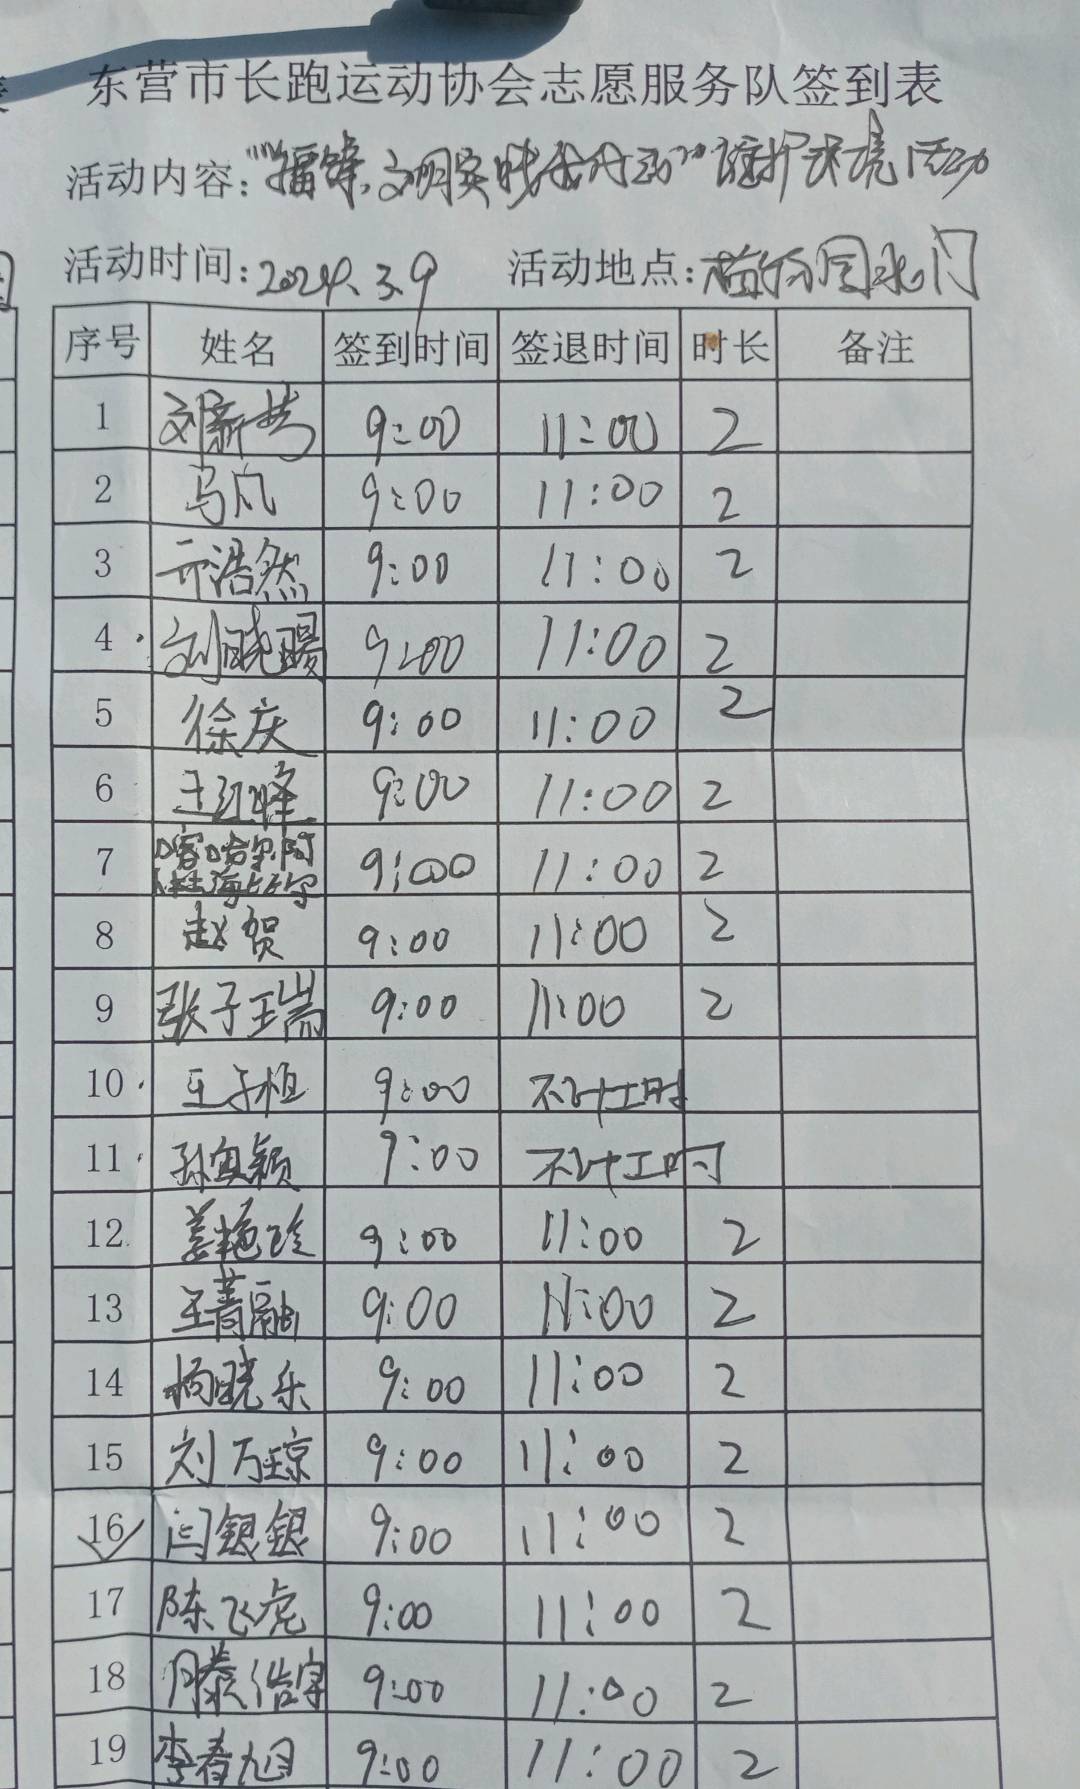 东营市长跑运动协会志愿服务队签到表
活动内容: 文明实践我行动" 维护环境活动
活动时间: 2024.3.9 活动地点: 北门
序号 姓名 签到时间 签退时间 时长 备注
1 9:00 11:00 2
2 马凡 9:00 11:00 2
3 亓浩然 9:00 11:00 2
4 刘晓暖 9:00 11:00 2
5 徐庆 9:00 11:00 2
6 王红峰 9:00 11:00 2
7 9:00 11:00 2
8 赵贺 9:00 11:00 2
9 张子瑞 9:00 11:00 2
10 王子桓 9:00 不计工时
11 9:00 不计工时
12 姜艳玲 9:00 11:00 2
13 王菁融 9:00 11:00 2
14 杨晓乐 9:00 11:00 2
15 刘万琼 9:00 11:00 2
16 闫银银 9:00 11:00 2
17 陈飞虎 9:00 11:00 2
18 9:00 11:00 2
19 李春旭 9:00 11:00 2